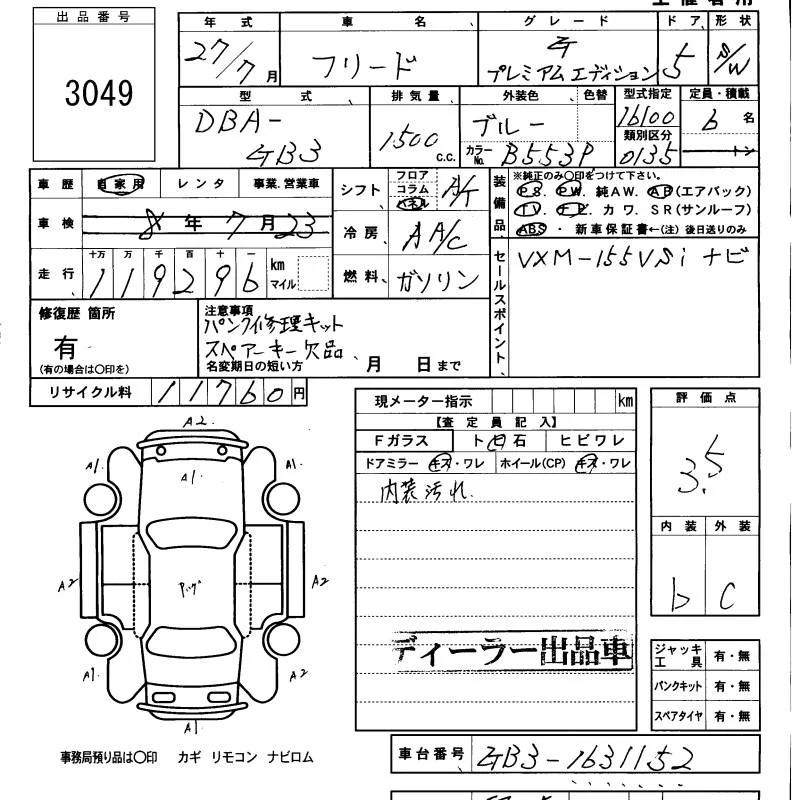 出品番号
3049
年式 車名 グレード ドア 形状
27/7月 フリード G プレミアムエディション 5 S/W
型式 排気量 外装色 色替 型式指定 定員・積載
DBA-GB3 1500 c.c. ブルー 16100 6名
カラーNo. B553P 類別区分 0135 トン
車歴 自家用 レンタ 事業.営業車
車検 8年7月23
走行 十万 万 千 百 十 一
119296 km マイル
シフト フロア コラム パネル A/T
冷房 AA/C
燃料 ガソリン
装備品
※純正のみ〇印をつけて下さい。
PS. PW. 純AW. AB(エアバック)
TV. カワ. SR(サンルーフ)
ABS・新車保証書←(注)後日送りのみ
セールスポイント
VXM-155VSi ナビ
修復歴 箇所
有
(有の場合は〇印を)
注意事項
パンク修理キット
スペアーキー欠品
名変期日の短い方 月 日まで
リサイクル料 11760円
現メーター指示 km
【査定員記入】
Fガラス ト日石 ヒビワレ
ドアミラー キズ・ワレ ホイール(CP) キズ・ワレ
内装汚れ
評価点
3.5
内装 外装
b C
A2
A1 A1 A1
A2 A2
A1 A2
A1
ディーラー出品車
ジャッキ工具 有・無
パンクキット 有・無
スペアタイヤ 有・無
事務局預り品は〇印 カギ リモコン ナビロム
車台番号 GB3-1631152